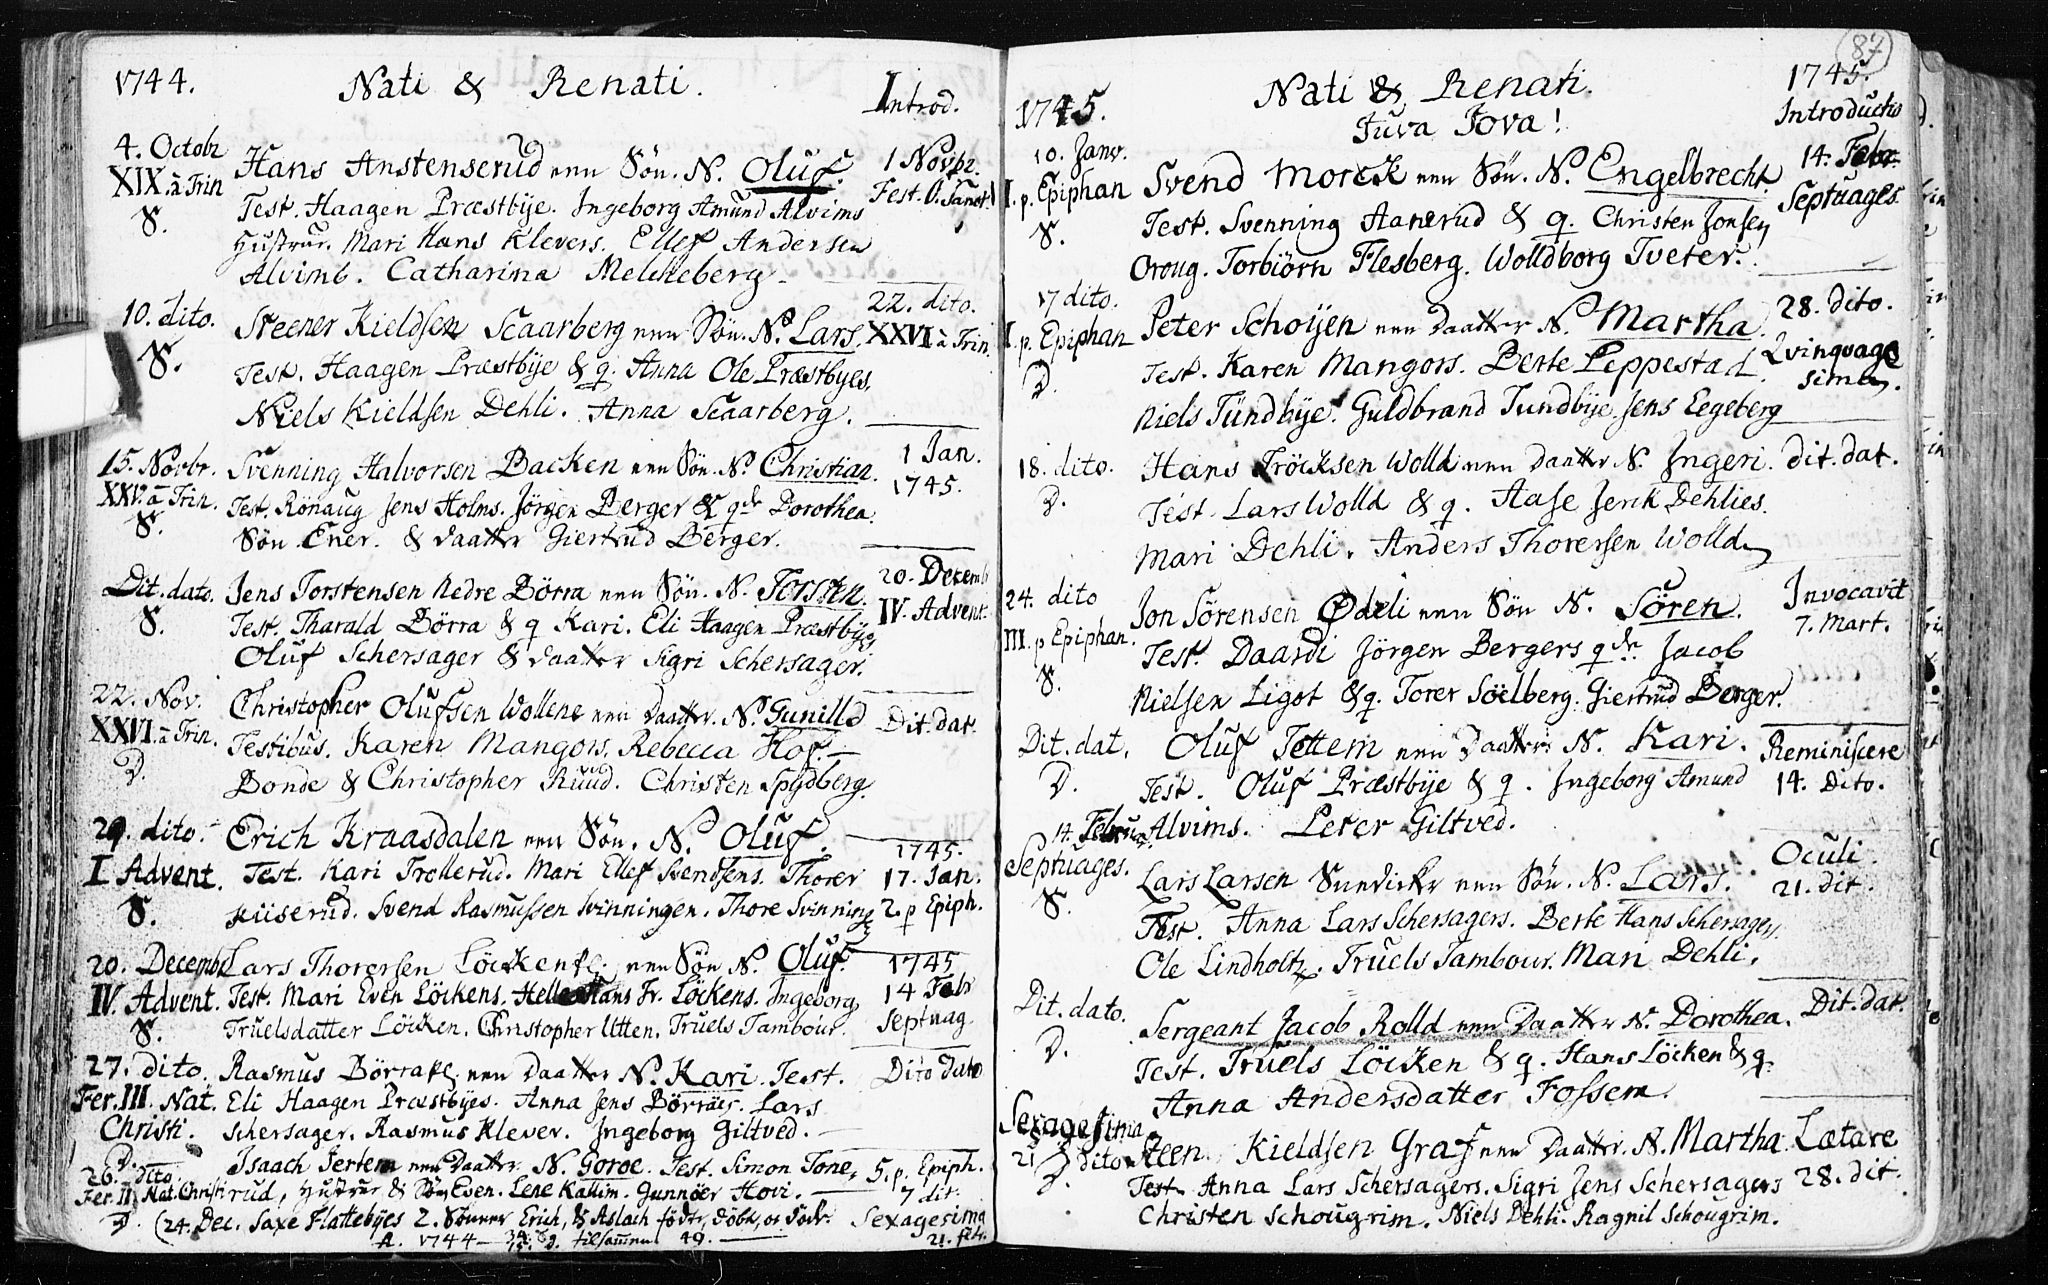 1744. Nati & Renati. Introd.
4. Octobr Hans Anstenserud een Sön. N. Oluf. 1 Novbr.
XIX. à Trin Test. Haagen Præstbÿe. Ingeborg Amund Alvims Fest. O. Sanct.
S. Hustrue. Mari Hans Klevers. Ellef Andersen
Alvimb. Catharina Melcheberg.
10. dito. Steener Kieldsen Scaarberg een Sön. N. Lars. 22. dito.
S. Test. Haagen Præstbÿe & q. Anna Ole Præstbyes. XXVI à Trin.
Niels Kieldsen Dehli. Anna Scaarberg.
15. Novbr. Svenning Halvorsen Backen een Sön. N. Christian. 1 Jan.
XXV. à Trin. Test. Rönaug Jens Holms. Jörgen Berger & qde Dorothea. 1745.
S. Sön Ener. & daatter Giertrud Berger.
Dit. dato. Jens Torstensen Nedre Börra een Sön. N. Torsten. 20. Decemb
S. Test. Tharald Börra & q Kari. Eli Haagen Præstbÿe IV. Advent.
Oluf Schersager & daatter Sigri Schersager.
22. Nov. Christopher Olufsen Wollene een Daatter. N. Gunilld Dit. dat.
XXVI. à Trin. Testibus. Karen Mangors. Rebecca Hof.
D. Bonde & Christopher Ruud. Christen Spydberg.
29. dito. Erich Kraasdalen een Sön. N. Oluf. 1745.
I Advent. Test. Kari Trollerud. Mari Ellef Svendsens. Thorer 17. Jan.
S. Kiiserud. Svend Rasmussen Svinningen. Thore Svinning 2. p Epiph.
20. Decembr Lars Thorersen Löckenke. een Sön N. Oluf. 1745
IV. Advent. Test. Mari Even Löckens. Helle Hans Fr. Löckens. Ingeborg 14 Febr
S. Truelsdatter Löcken. Christopher Utten. Truels Tambour. Septuag
27. dito. Rasmus Börrake. een Daatter N. Kari. Test. Dito Dato
Fer. III. Nat. Eli Haagen Præstbyes. Anna Jens Börraes. Lars
Christi. Schersager. Rasmus Klever. Ingeborg Giltved.
D. Isaach Jertem een Daatter N. Goroe. Test. Simon Tone, 5. p. Epiph.
26. dito
Fer. II Nat. Christi rud, Hustrue & Sön Even. Lene Kallim. Gunnöer Hovi. 7 dit.
D (24. Dec. Saxe Flattebÿes 2. Sönner Erich, & Aslach födte, döbte, og döde. Sexagesima
A. 1744 tilsammen 49. 21. feb.
87
1745. Nati & Renati. 1745.
Juva Jova! Introductio
10. Janv. Svend Morck een Sön. N. Engelbrecht. 14. Febr.
I. p. Epiphan Test. Svenning Aanerud & q. Christen Jonsen Septuages.
S. Oroug. Torbiörn Flesberg. Wolldborg Tveter.
17 dito. Peter Schoÿen een Daatter N. Martha. 28. dito.
I. p. Epiphan Test. Karen Mangors. Berte Leppestad. Qvinqvage
D. Niels Tündbÿe. Guldbrand Tundbÿe. Jens Eegeberg simæ.
18. dito. Hans Tröcksen Wolld een Daatter N. Ingeri. Dit. dat.
D. Test. Lars Wolld & q. Aase Jerik Dehlies.
Mari Dehli. Anders Thorersen Wolld
24. dito Jon Sörensen Ødeli een Sön N. Sören. Invocavit
III. p Epiphan. Test. Daardi Jörgen Bergers qde. Jacob 7. Mart.
S. Nielsen Ligot & q. Torer Söelberg. Giertrud Berger.
Dit. dat. Oluf Tettem een Daatter N. Kari. Reminiscere
D. Test. Oluf Præstbÿe & q. Ingeborg Amund 14. Dito.
14. Februar Alvims. Peter Giltved.
Septuages. Lars Larsen een Sön. N. Lars. Oculi.
S. Test. Anna Lars Schersagers. Berte Hans Schersager. 21. dit.
Ole Lindholtz. Truels Tambour. Mari Dehli.
Dit. dato. Sergeant Jacob Rolld een Daatter N. Dorothea. Dit. dat.
D. Test. Truels Löcken & q. Hans Löcken & q.
Anna Andersdatter Fossem.
Sexagesima
21 dito Steen Kieldsen Graf een Daatter. N. Martha. Lætare
D. Test. Anna Lars Schersagers. Sigri Jens Schersagers 28. dit.
Christen Schougrim. Niels Dehli. Ragnil Schougrim.